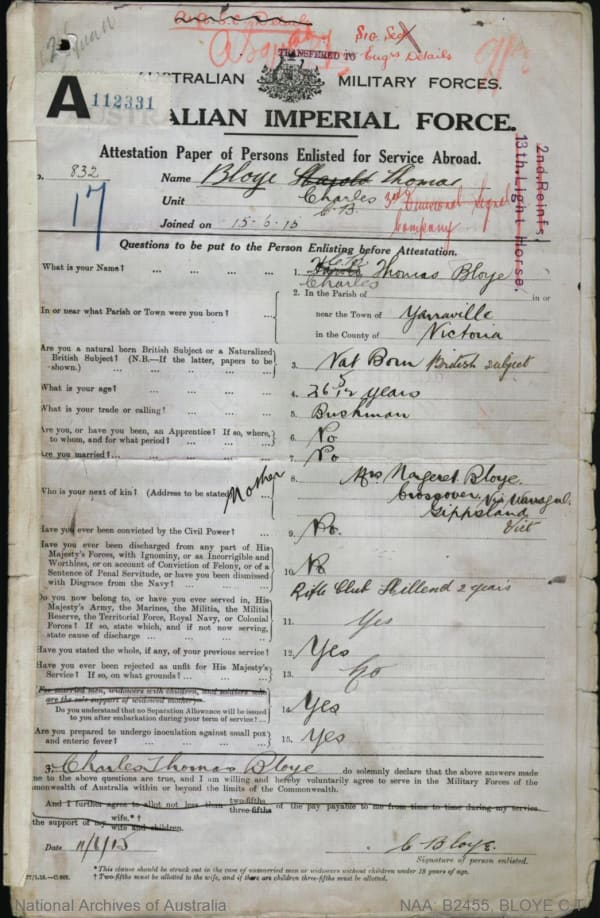 TRANSFERED TO
Sig Sec
Engrs Details
AUSTRALIAN MILITARY FORCES.
A 112331
AUSTRALIAN IMPERIAL FORCE.
Attestation Paper of Persons Enlisted for Service Abroad.
2nd Reinfs.
13th Light Horse.
o. 832 Name Bloye Harold Thomas
17 Charles
Unit C.B. 3rd Divisional Signal Company
Joined on 15-6-15
Questions to be put to the Person Enlisting before Attestation.
What is your Name? ... ... ... ... 1. Thomas Bloye
Charles
2. In the Parish of in or
In or near what Parish or Town were you born? ... near the Town of Yarraville
in the County of Victoria
Are you a natural born British Subject or a Naturalized
British Subject? (N.B.—If the latter, papers to be
shown.) 3. Nat Born British subject
What is your age? ... 4. 26 5/12 years
What is your trade or calling? ... 5. Bushman
Are you, or have you been, an Apprentice? If so, where,
to whom, and for what period? ... 6. No
Are you married?... 7. No
Who is your next of kin? (Address to be stated) Mother 8. Mrs Margaret Bloye
Crossover, Via Warragul
Gippsland
Vict
Have you ever been convicted by the Civil Power? ... 9. No.
Have you ever been discharged from any part of His
Majesty's Forces, with Ignominy, or as Incorrigible and
Worthless, or on account of Conviction of Felony, or of a
Sentence of Penal Servitude, or have you been dismissed
with Disgrace from the Navy? ... 10. No
Do you now belong to, or have you ever served in, His
Majesty's Army, the Marines, the Militia, the Militia
Reserve, the Territorial Force, Royal Navy, or Colonial
Forces? If so, state which, and if not now serving,
state cause of discharge ... 11. Rifle Club 2 years
Yes
Have you stated the whole, if any, of your previous service? 12. Yes
Have you ever been rejected as unfit for His Majesty's
Service? If so, on what grounds? ... 13. No
For married men, widowers with children, and soldiers who
are the sole support of widowed mother).
Do you understand that no Separation Allowance will be issued
to you after embarkation during your term of service? ... 14. Yes
Are you prepared to undergo inoculation against small pox
and enteric fever? ... 15. Yes
3. Charles Thomas Bloye do solemnly declare that the above answers made
me to the above questions are true, and I am willing and hereby voluntarily agree to serve in the Military Forces of the
mmonwealth of Australia within or beyond the limits of the Commonwealth.
And I further agree to allot not less than two-fifths three-fifths of the pay payable to me from time to time during my service
the support of my wife.*† wife and children.
Date 11/6/15 C Bloye.
Signature of person enlisted.
*This clause should be struck out in the case of unmarried men or widowers without children under 18 years of age.
† Two-fifths must be allotted to the wife, and if there are children three-fifths must be allotted.
National Archives of Australia NAA: B2455, BLOYE C T